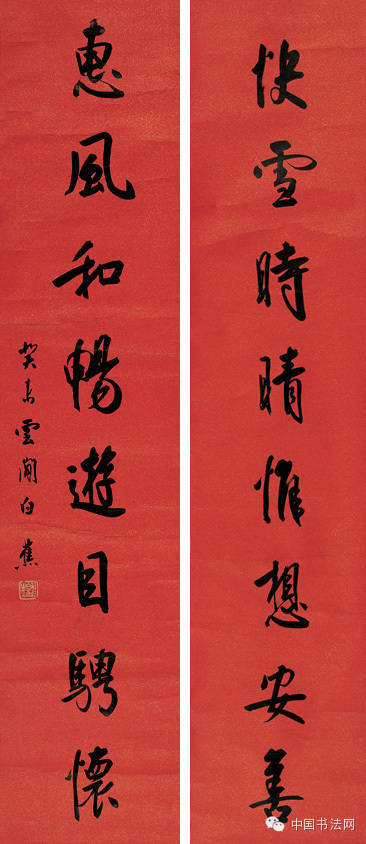 快雪時晴惟想安善
惠風和暢遊目騁懷
癸未雲間白蕉
中国书法网